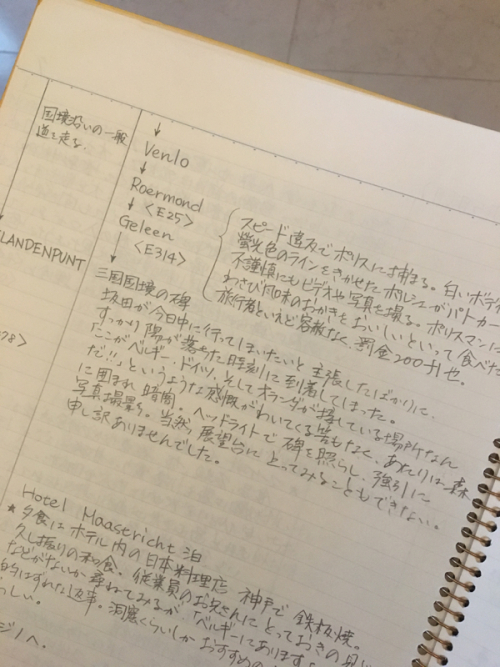 国境沿いの一般
道を走る。
↓
Venlo
↓
Roermond
↓ <E25>
Geleen
↓ <E314>
LANDENPUNT
スピード違反でポリスに捕まる。白いボディ
蛍光色のラインをきかせたポルシェがパトカー
不謹慎にもビデオや写真を撮る。ポリスマンに
わさび風味のおかきをおいしいといって食べた
旅行者といえど容赦なく、罰金200ギル也。
三国国境の碑
坂田が今日中に行ってしまいたいと主張したばかりに、
すっかり陽が落ちた時刻に到着してしまった。
「ここがベルギー、ドイツ、そしてオランダが接している場所なん
だ!!」というような感慨がわいてくる筈もなく、あたりは森
に囲まれ暗闇。ヘッドライトで碑を照らし、強引に
写真撮影。当然、展望台にとってみることもできない。
申し訳ありませんでした。
78>
Hotel Maastricht 泊
★夕食はホテル内の日本料理店 神戸で鉄板焼。
久し振りの和食。従業員のお兄さんにとっておきの
などがないか尋ねてみるが、「ベルギーにあります
的はずれな返事。洞窟くらいしかおすすめの
らしい。
ジノへ。